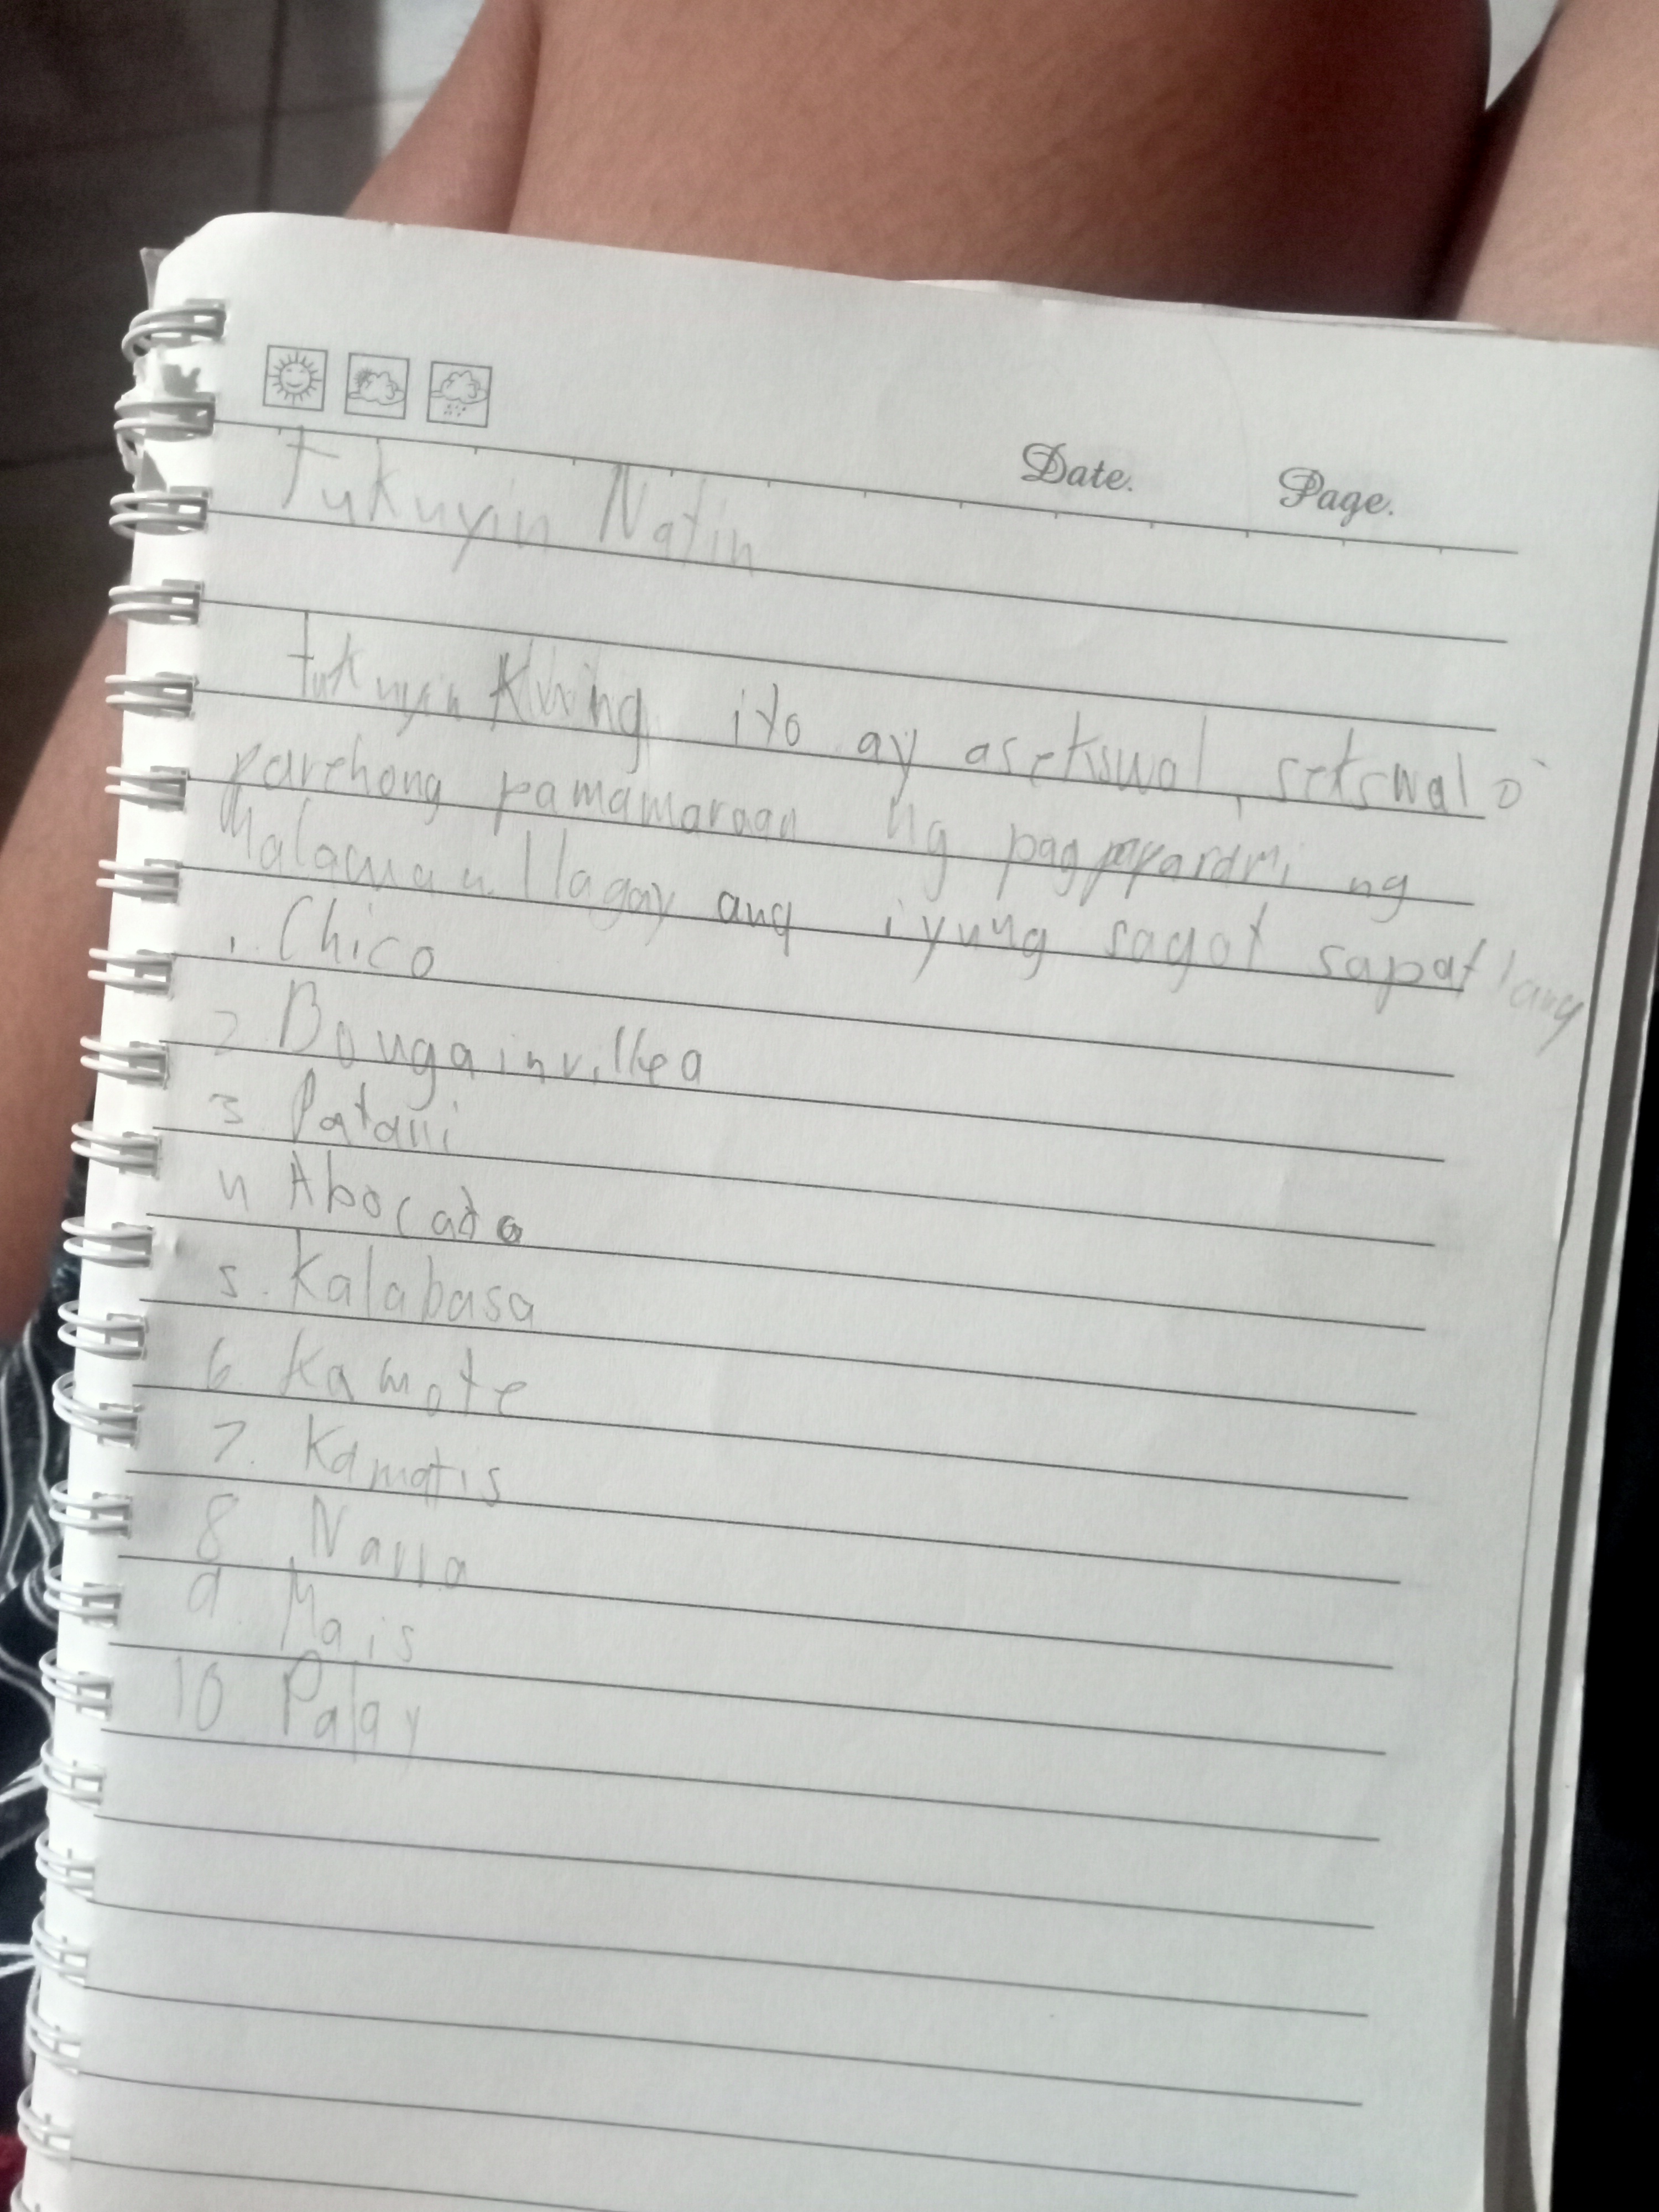 Date. Page.
Tukuyin Natin
Tukuyin Kung ito ay asekswal, sekswal o
parehong pamamaraan ng pagpaparami ng
Malaman Ilagay ang iyung sagot sapatlang
1. Chico
2 Bougainvillea
3. Patani
4 Abocado
5. Kalabasa
6. Kamote
7. Kamatis
8 Narra
9. Mais
10 Palay